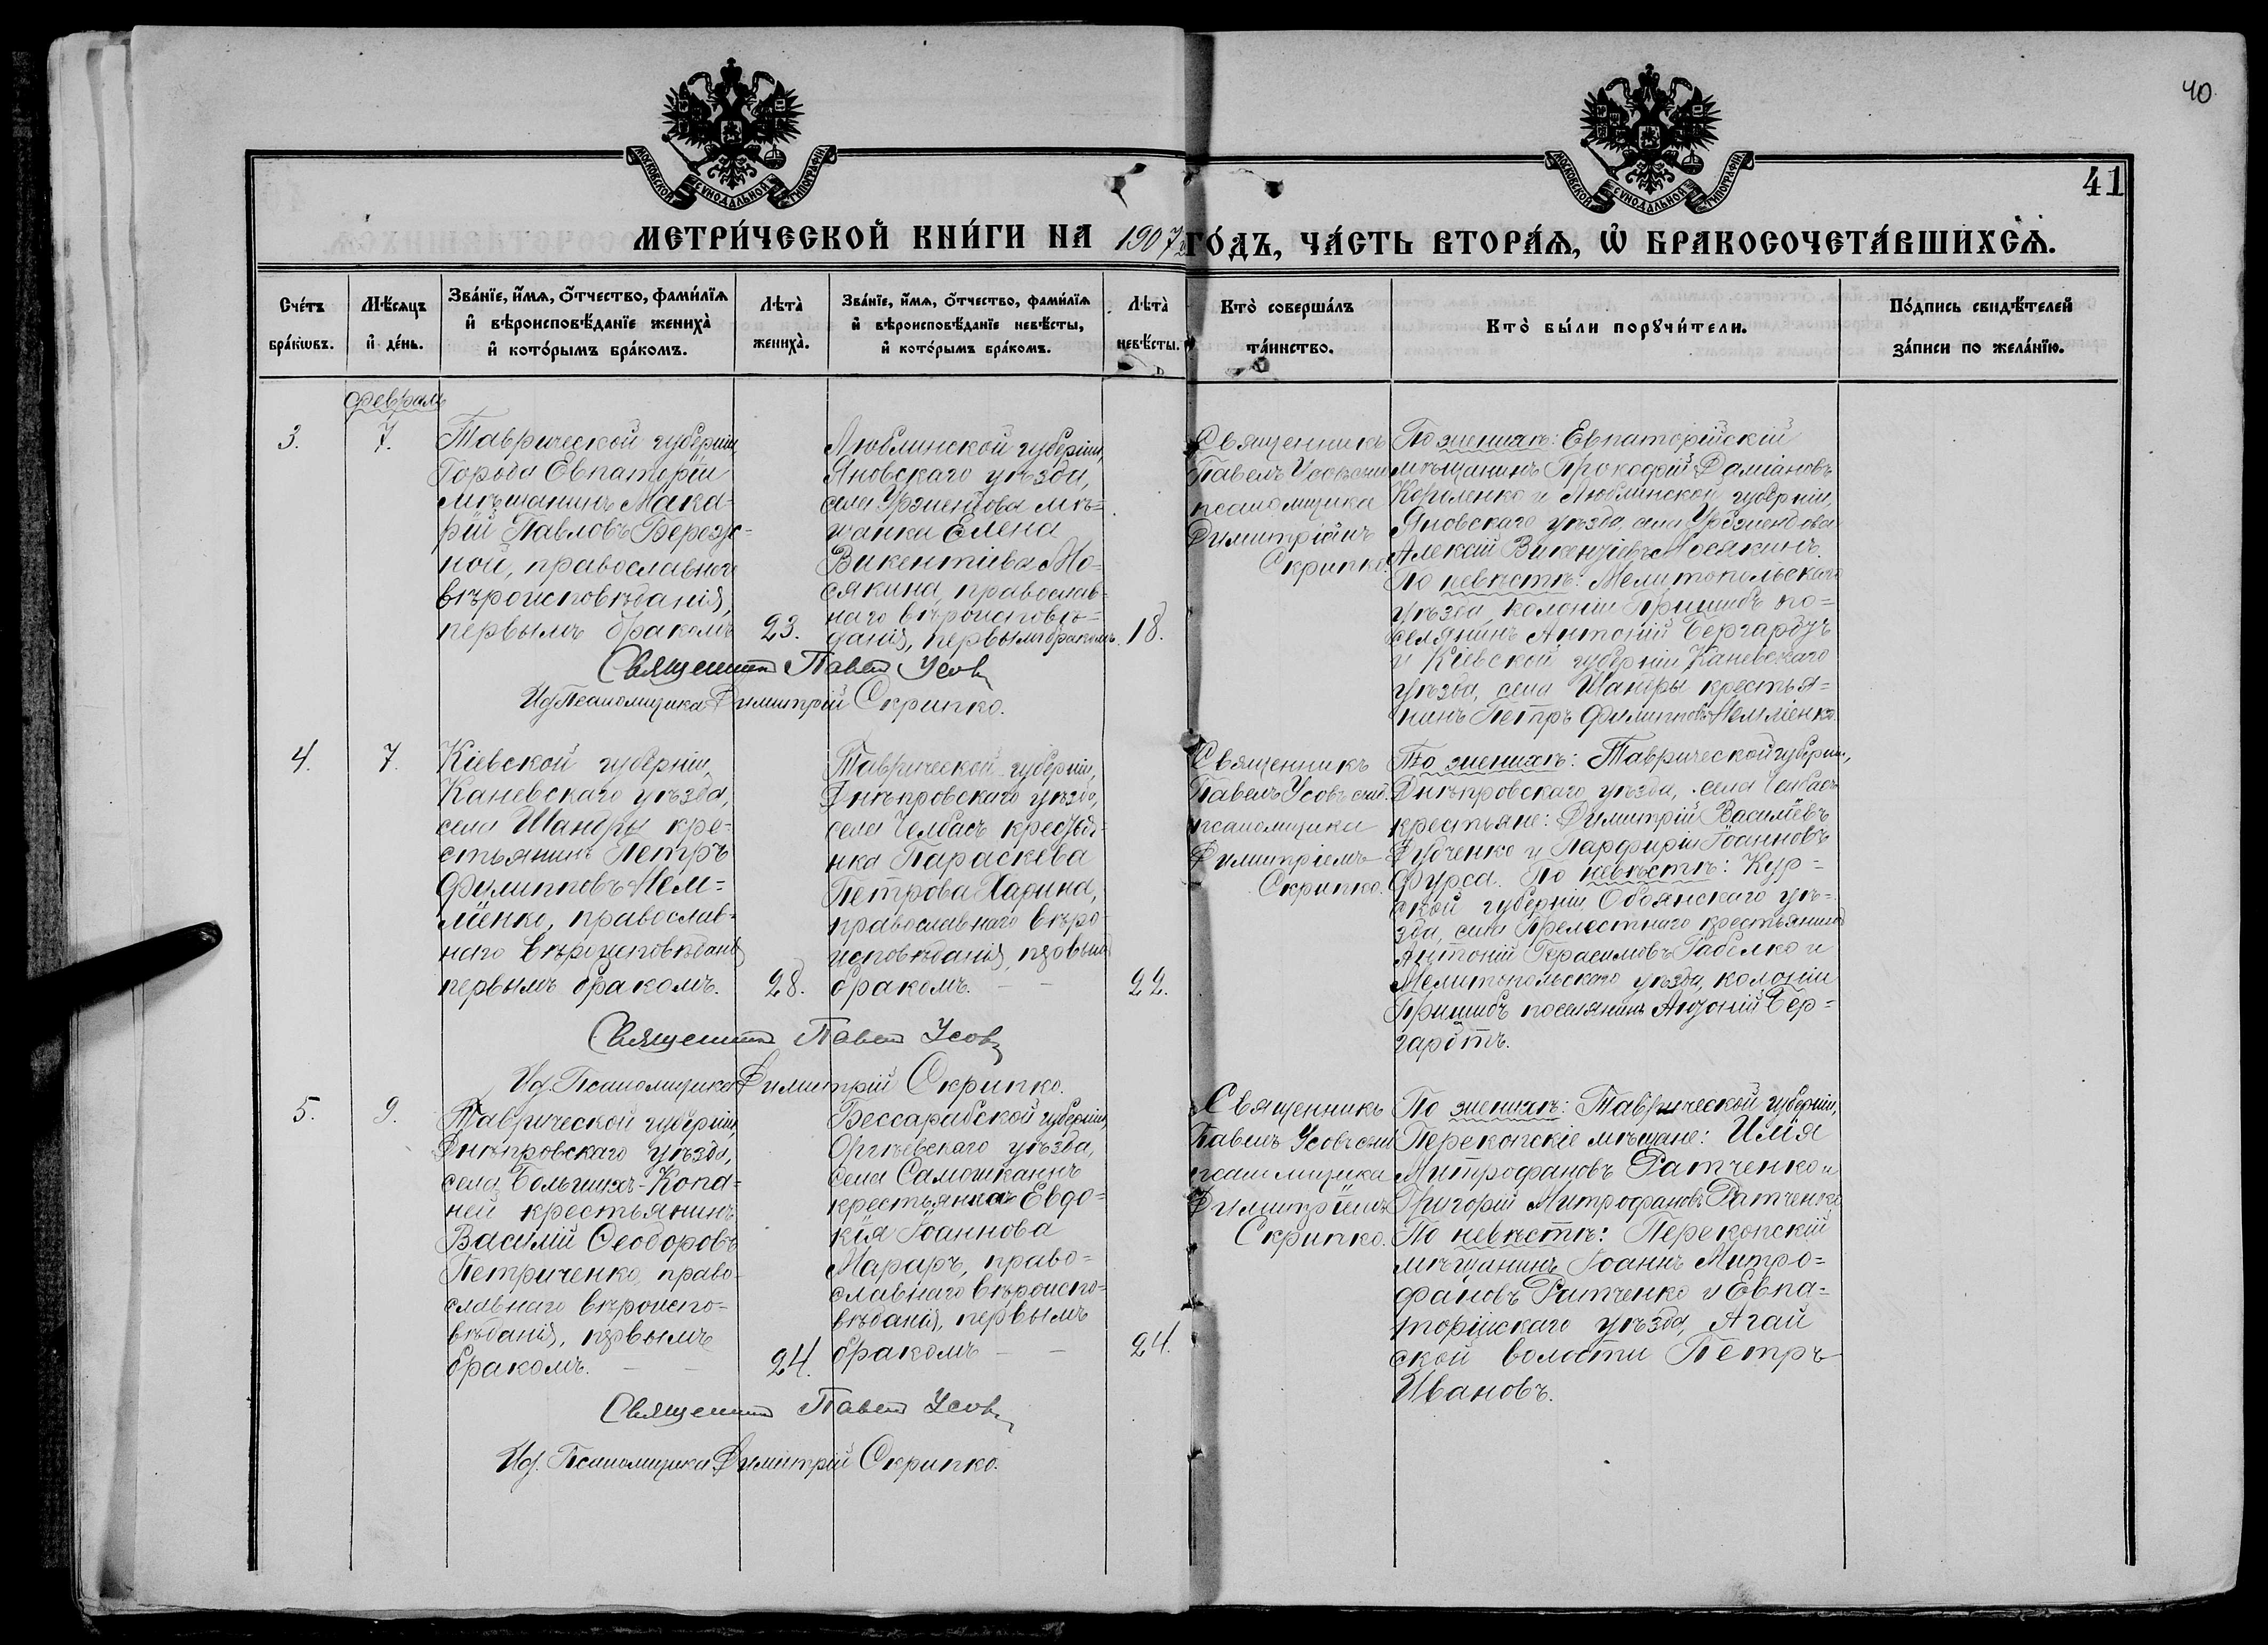 40
МОСКОВСКОЙ СѴНОДАЛЬНОЙ ТИПОГРАФІИ
МОСКОВСКОЙ СѴНОДАЛЬНОЙ ТИПОГРАФІИ
41
МЕТРИ́ЧЕСКОЙ КНИ́ГИ НА 1907 ГО́ДЪ, ЧА́СТЬ ВТОРА́Я, Ѡ БРАКОСОЧЕТА́ВШИХСЯ.
Сче́тъ
бра́кѡвъ.
Мѣ́сяцъ
и де́нь.
Зва́нїе, и́мя, о́тчество, фами́лїя
и вѣроисповѣ́данїе жениха̀
и кото́рымъ бра́комъ.
Лѣта̀
жениха̀.
Зва́нїе, и́мя, о́тчество, фами́лїя
и вѣроисповѣ́данїе невѣ́сты,
и кото́рымъ бра́комъ.
Лѣта̀
невѣ́сты.
Кто̀ соверша́лъ
та́инство.
Кто̀ бы́ли порꙋчи́тели.
По́дпись свидѣ́телей
за́писи по жела́нїю.
Февраль
3.
7.
Таврической губерніи
Города Евпаторіи
мѣщанинъ Мака=
рій Павловъ Береж=
ной, православнаго
вѣроисповѣданія,
первымъ бракомъ
23.
Люблинской губерніи,
Яновскаго уѣзда,
села Уржендова мѣ=
щанка Елена
Викентіева Мо=
сякина, православ=
наго вѣроисповѣ=
данія, первымъ бракомъ.
18.
Священникъ
Павелъ Усовъ съ и.д.
псаломщика
Димитріемъ
Скрипко.
По женихѣ: Евпаторійскій
мѣщанинъ Прокофій Даміановъ
Коваленко и Люблинской губерніи,
Яновскаго уѣзда, села Уржендова
Алексій Викентіевъ Мосякинъ.
По невѣстѣ: Мелитопольскаго
уѣзда, колоніи Пришибъ по=
селянинъ Антоній Бергардтъ
и Кіевской губерніи Каневскаго
уѣзда, села Шандры крестья=
нинъ Петръ Филипповъ Немліенко.
Священникъ Павелъ Усовъ
И.д. Псаломщика Димитрій Скрипко.
4.
7.
Кіевской губерніи,
Каневскаго уѣзда,
села Шандры кре=
стьянинъ Петръ
Филипповъ Нем=
ліенко, православ=
наго вѣроисповѣданія
первымъ бракомъ.
28.
Таврической губерніи,
Днѣпровскаго уѣзда,
села Челбасъ крестья=
нка Параскева
Петрова Харина,
православнаго вѣро=
исповѣданія, первымъ
бракомъ. — —
22.
Священникъ
Павелъ Усовъ съ и.д.
псаломщика
Димитріемъ
Скрипко.
По женихѣ: Таврической губерніи,
Днѣпровскаго уѣзда, села Челбасъ
крестьяне: Димитрій Васильевъ
Дудченко и Парфирій Іоанновъ
Фурса. По невѣстѣ: Кур=
ской губерніи Обоянскаго уѣ=
зда, села Прелестнаго крестьянинъ
Антоній Герасимовъ Габелко и
Мелитопольскаго уѣзда, колоніи
Пришибъ поселянинъ Антоній Бер=
гардтъ.
Священникъ Павелъ Усовъ
И.д. Псаломщика Димитрій Скрипко.
5.
9.
Таврической губерніи,
Днѣпровскаго уѣзда,
села Большихъ-Копа=
ней крестьянинъ
Василій Ѳеодоровъ
Петриченко, право=
славнаго вѣроиспо=
вѣданія, первымъ
бракомъ. — —
24.
Бессарабской губерніи,
Оргѣевскаго уѣзда,
села Самошканъ
крестьянка Евдо=
кія Іоаннова
Мараръ, право=
славнаго вѣроиспо=
вѣданія, первымъ
бракомъ — —
24.
Священникъ
Павелъ Усовъ съ и.д.
псаломщика
Димитріемъ
Скрипко.
По женихѣ: Таврической губерніи,
Перекопскіе мѣщане: Илія
Митрофановъ Ратченко и
Григорій Митрофановъ Ратченко
По невѣстѣ: Перекопскій
мѣщанинъ Іоаннъ Митро=
фановъ Ратченко и Евпа=
торійскаго уѣзда, Агай
ской волости Петръ
Ивановъ.
Священникъ Павелъ Усовъ
И.д. Псаломщика Димитрій Скрипко.